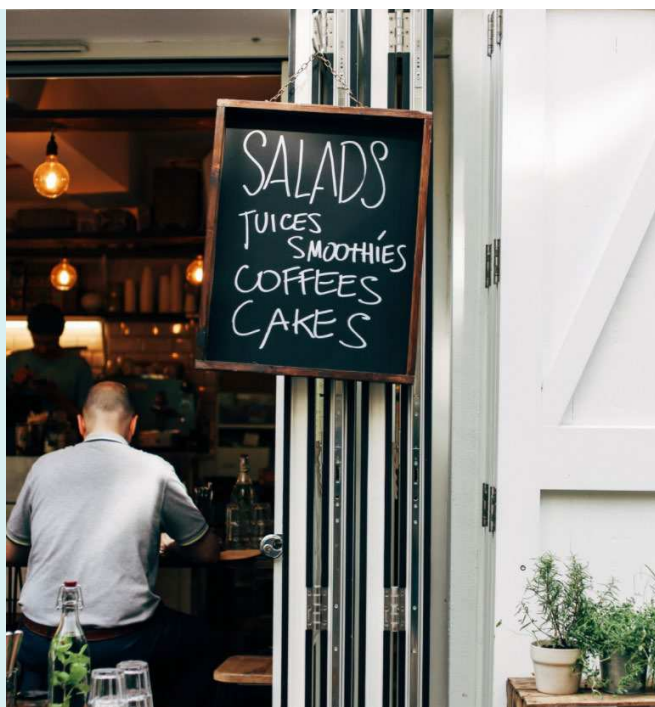 SALADS
JUICES
SMOOTHIES
COFFEES
CAKES